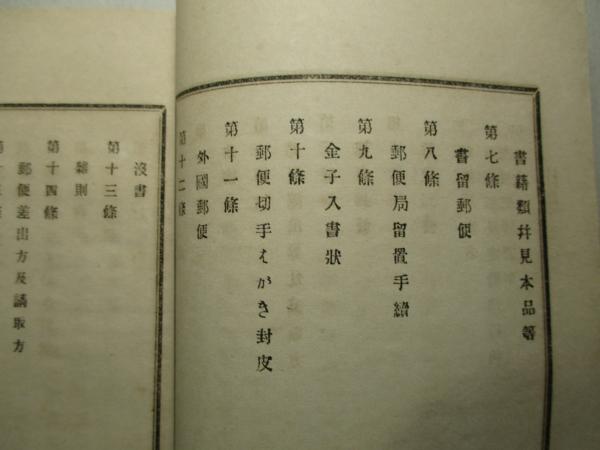 書籍類幷見本品等
第七條
書留郵便
第八條
郵便局留置手續
第九條
金子入書狀
第十條
郵便切手はがき封皮
第十一條
外國郵便
第十二條
沒書
第十三條
雜則
第十四條
郵便差出方及請取方